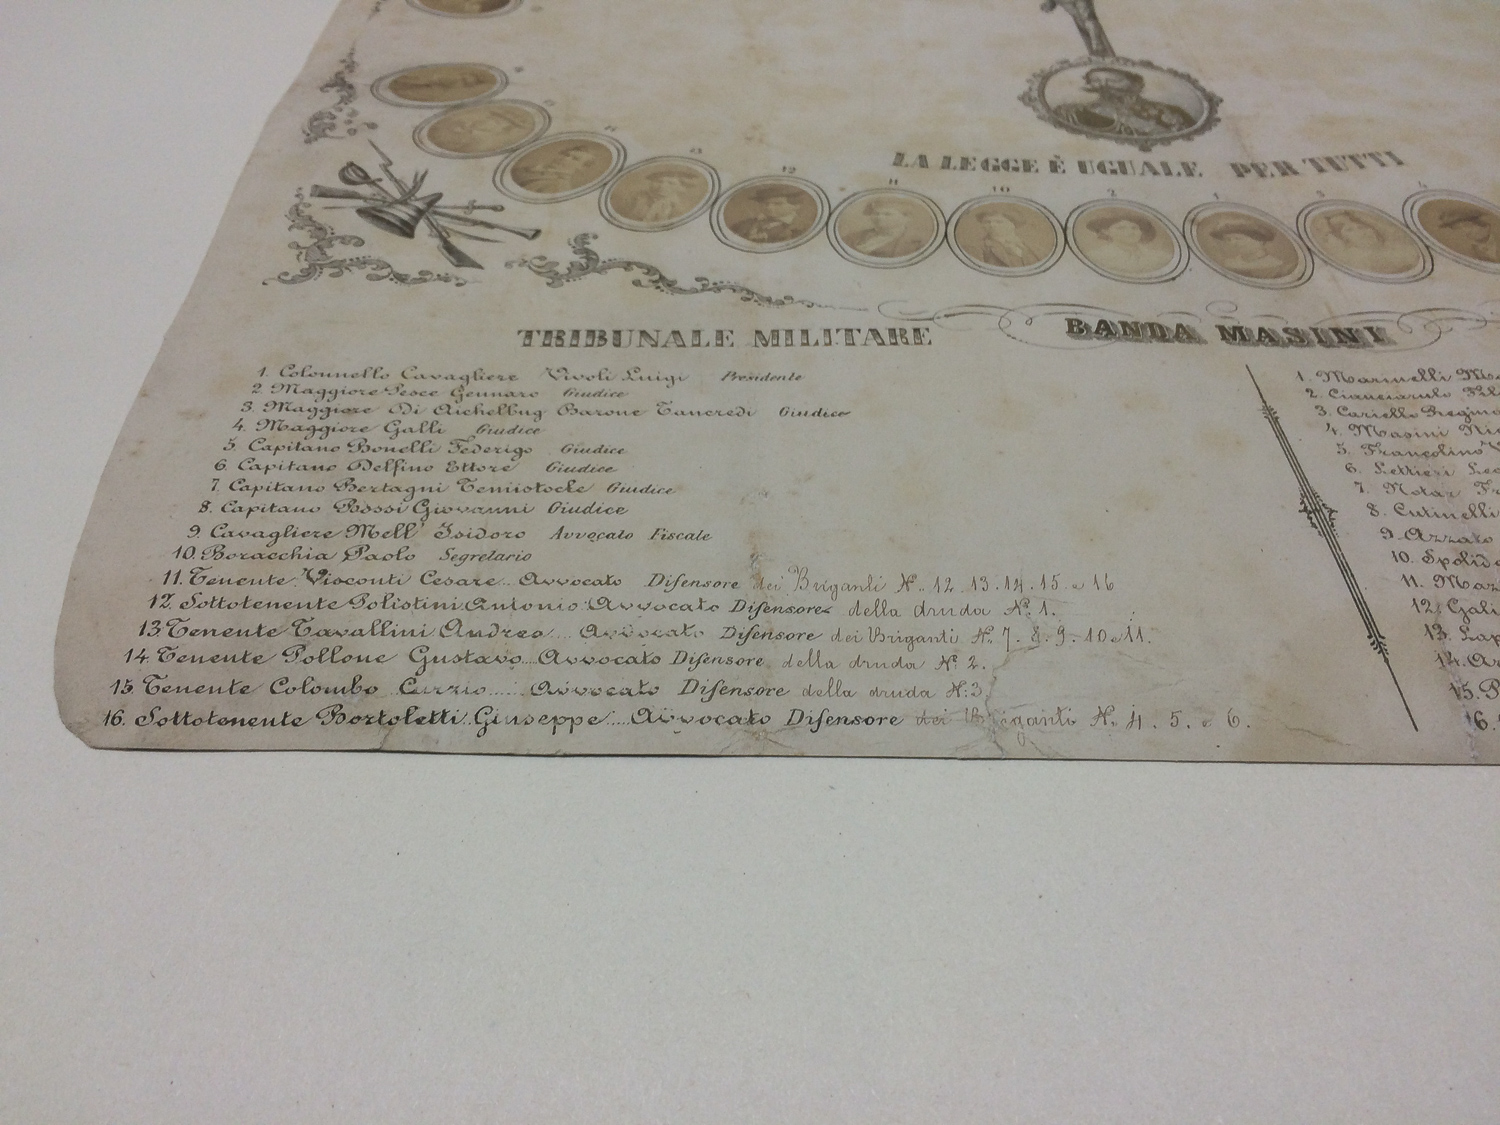 LA LEGGE È UGUALE PER TUTTI
13 12 11 10 2 1 3
TRIBUNALE MILITARE
1. Colonnello Cavagliere Vivoli Luigi Presidente
2. Maggiore Pesce Gennaro Giudice
3. Maggiore Di Aichelbug Barone Tancredi Giudice
4. Maggiore Galli Giudice
5. Capitano Bonelli Federigo Giudice
6. Capitano Delfino Ettore Giudice
7. Capitano Bertagni Temiistocle Giudice
8. Capitano Bossi Giovanni Giudice
9. Cavagliere Mell' Isidoro Avvocato Fiscale
10. Boracchia Paolo Segretario
11. Tenente Visconti Cesare... Avvocato Difensore dei Briganti N.. 12. 13. 14. 15. e 16
12. Sottotenente Polistini Antonio. Avvocato Difensore della druda N. 1.
13. Tenente Tavallini Andrea.... Avvocato Difensore dei Briganti N. 7. 8. 9. 10 e 11.
14. Tenente Pollone Gustavo... Avvocato Difensore della druda N. 2.
15. Tenente Colombo Curzio..... Avvocato Difensore della druda N: 3.
16. Sottotenente Bortoletti Giuseppe.... Avvocato Difensore dei Briganti N. 4. 5. e 6.
BANDA MASINI
1. Marinelli
2. Cianciarulo
3. Cariello
4. Masini
5. Francolino
6. Lettieri
7. Notar
8. Cutinelli
9. Azzato
10.
11.
12.
13.
14.
15.
16.